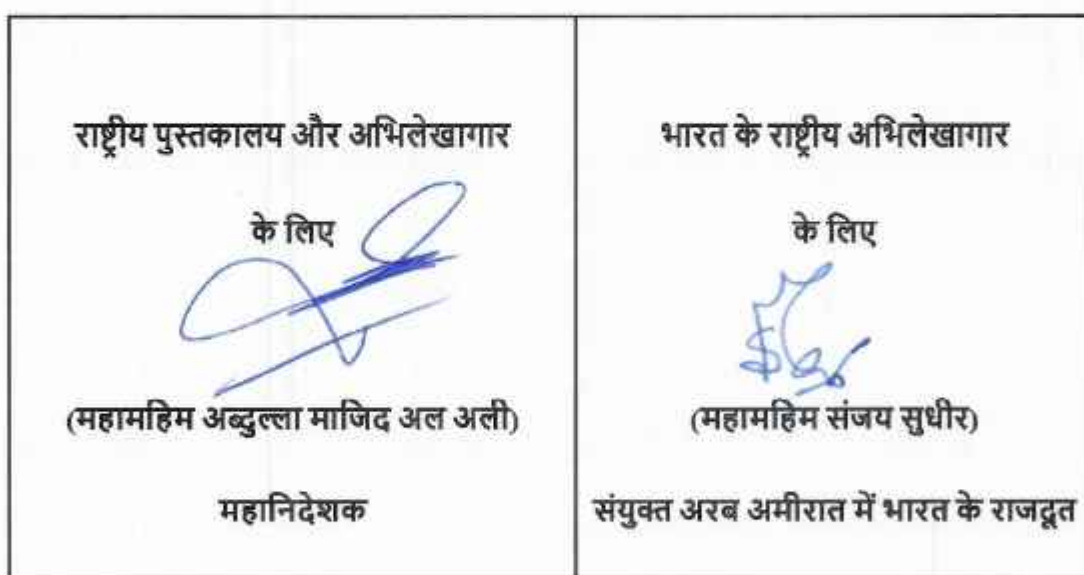 राष्ट्रीय पुस्तकालय और अभिलेखागार
के लिए
(महामहिम अब्दुल्ला माजिद अल अली)
महानिदेशक
भारत के राष्ट्रीय अभिलेखागार
के लिए
(महामहिम संजय सुधीर)
संयुक्त अरब अमीरात में भारत के राजदूत